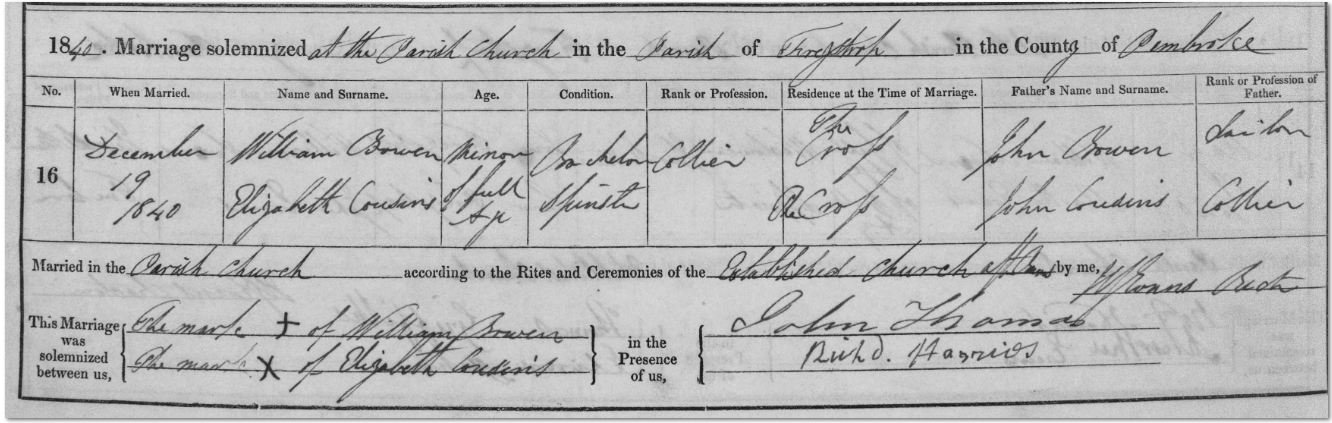 1840. Marriage solemnized at the Parish Church in the Parish of Freystrop in the County of Pembroke
No. When Married. Name and Surname. Age. Condition. Rank or Profession. Residence at the Time of Marriage. Father's Name and Surname. Rank or Profession of Father.
16 December 19 1840
William Bowen Minor Bachelor Collier The Cross John Bowen Sailor
Elizabeth Cousins of full Age Spinster The Cross John Cousins Collier
Married in the Parish Church according to the Rites and Ceremonies of the Established Church by me, Evans Rector
This Marriage was solemnized between us,
The mark + of William Bowen
The mark X of Elizabeth Cousins
in the Presence of us,
John Thomas
Richd. Harries